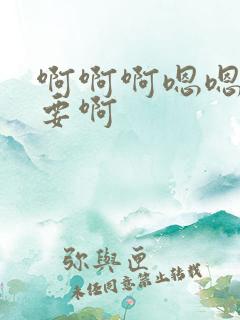 啊啊啊嗯嗯
要啊
弥與更
未经同意禁止转载